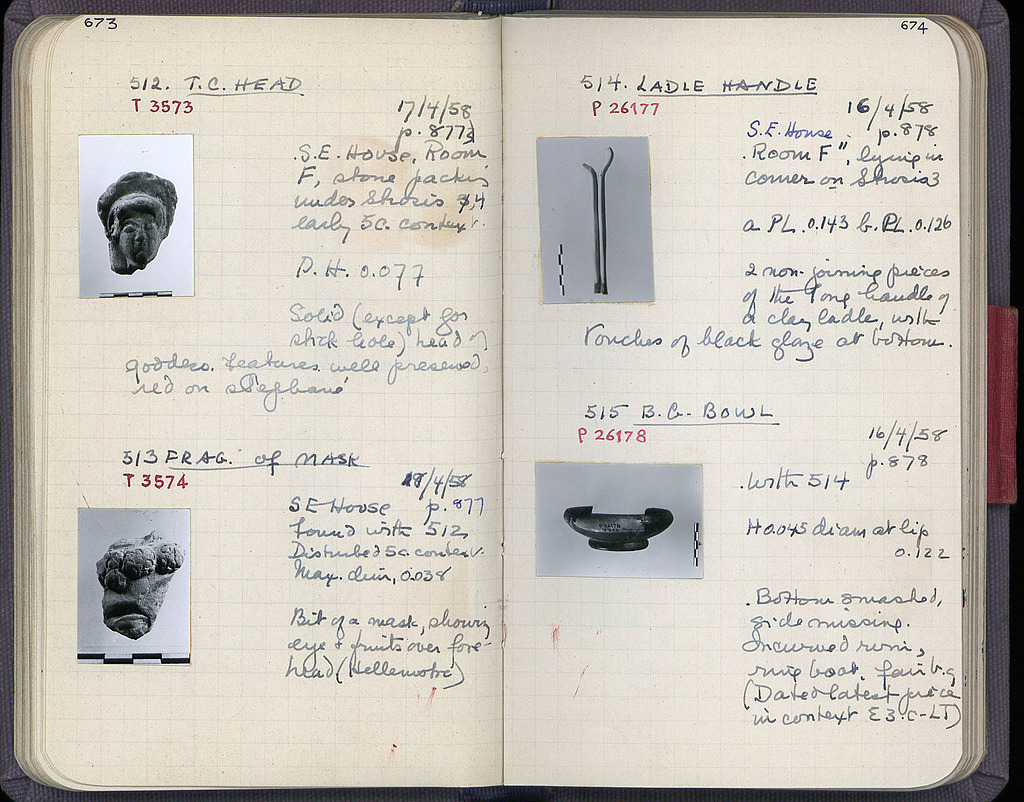 673
512. T.C. HEAD
T 3573
17/4/58
p. 877
S.E. House, Room
F, stone packing
under Strosis 3,4
early 5c. context.
P.H. 0.077
Solid (except for
stick hole) head of
goddess. Features well preserved,
red on stephane
513 FRAG. of MASK
T 3574
18/4/58
SE House p. 877
found with 512
Disturbed 5c. context.
Max. dim, 0.038
Bit of a mask, showing
eye & fruits over fore-
head (Hellenistic)
674
514. LADLE HANDLE
P 26177
16/4/58
S.E. House p. 878
Room F", lying in
corner on Strosis 3
a PL. 0.143 b. PL. 0.126
2 non-joining pieces
of the long handle of
a clay ladle, with
touches of black glaze at bottom.
515 B.G. BOWL
P 26178
16/4/58
p. 878
with 514
H 0.045 diam at lip
0.122
Bottom smashed,
side missing.
Incurved rim,
ring foot. fair b.g
(Dated latest piece
in context E 3.C-LT)
P 26178